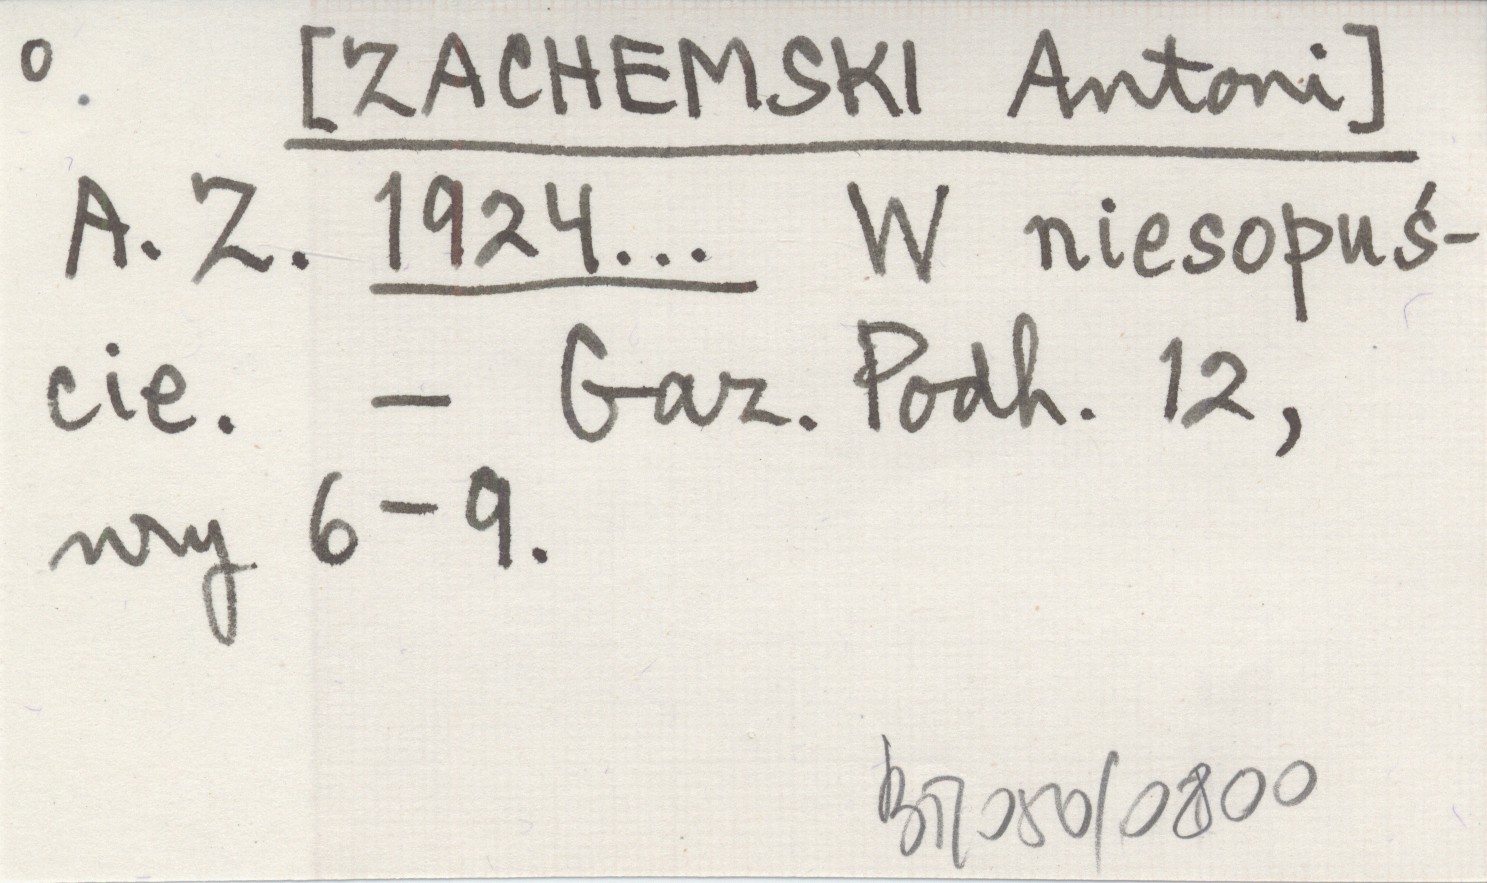 o. [ZACHEMSKI Antoni]
A. Z. 1924... W niesopuś-
cie. — Gaz. Podh. 12,
nry 6-9.
050/0800